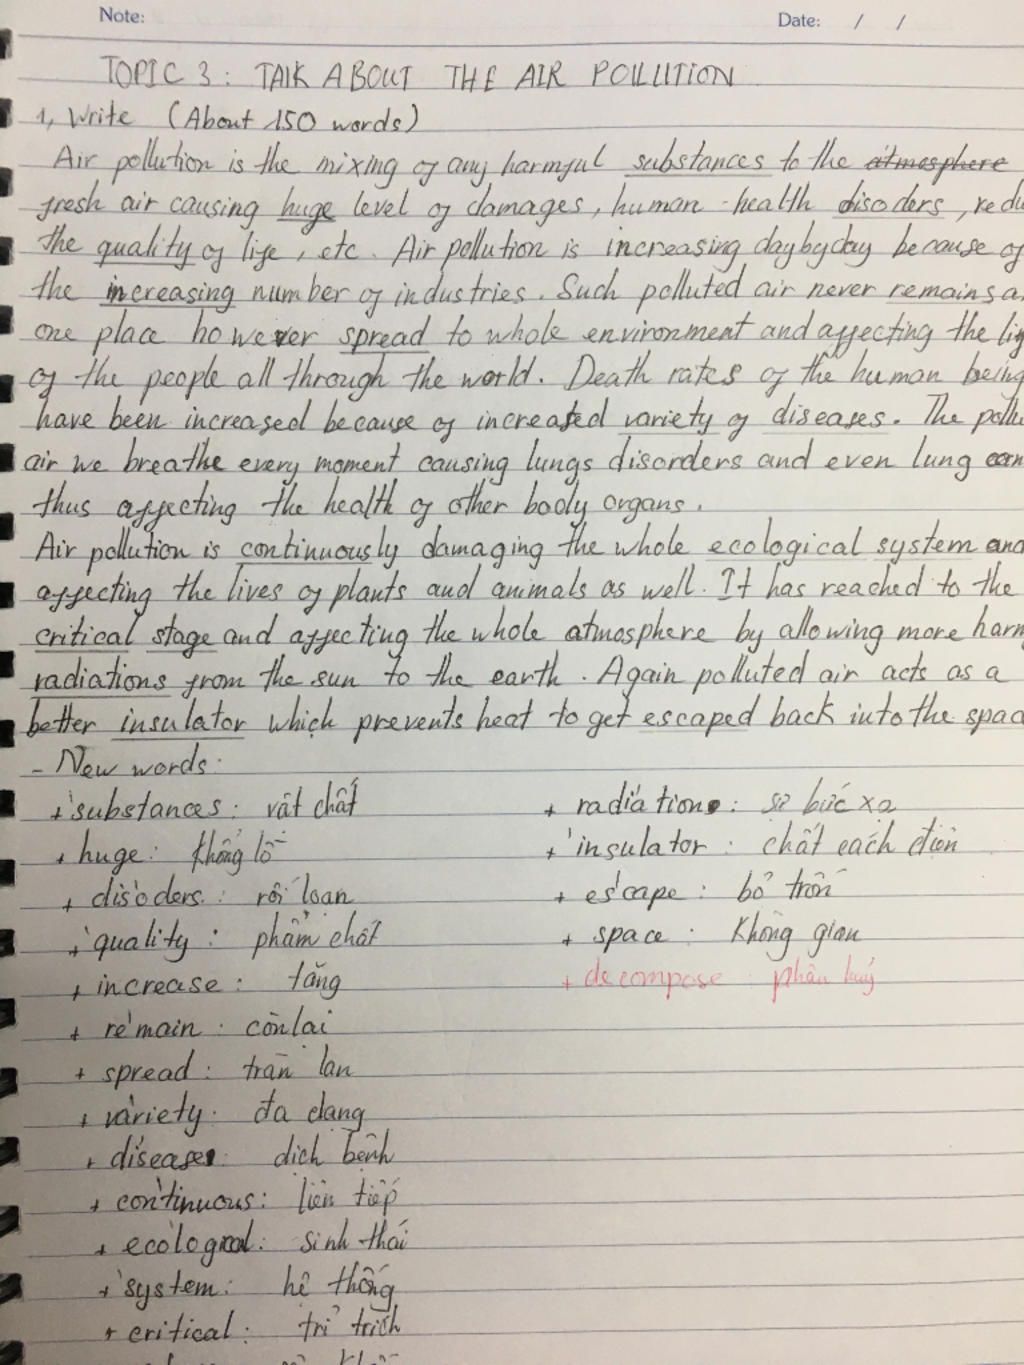 Note:
Date: / /
TOPIC 3: TALK ABOUT THE AIR POLLUTION
1, Write (About 150 words)
Air pollution is the mixing of any harmful substances to the atmosphere
fresh air causing huge level of damages, human-health disoders, redu
the quality of life, etc. Air pollution is increasing day by day because of
the increasing number of industries. Such polluted air never remains a
one place however spread to whole environment and affecting the li
of the people all through the world. Death rates of the human being
have been increased because of increated variety of diseases. The pollu
air we breathe every moment causing lungs disorders and even lung can
thus affecting the health of other body organs.
Air pollution is continuously damaging the whole ecological system and
affecting the lives of plants and animals as well. It has reached to the
critical stage and affecting the whole atmosphere by allowing more harm
radiations from the sun to the earth. Again polluted air acts as a
better insulator which prevents heat to get escaped back into the spac
- New words:
+ 'substances: vật chất
+ huge: khổng lồ
+ dis'oders: rối loạn
+ 'quality: phẩm chất
+ increase: tăng
+ re'main: còn lại
+ spread: tràn lan
+ va'riety: đa dạng
+ di'sease: dịch bệnh
+ con'tinuous: liên tiếp
+ eco'logical: sinh thái
+ 'system: hệ thống
+ critical: trỉ trích
+ radi'ation: sự bức xạ
+ 'insulator: chất cách điện
+ es'cape: bỏ trốn
+ space: không gian
+ decompose phân huỷ